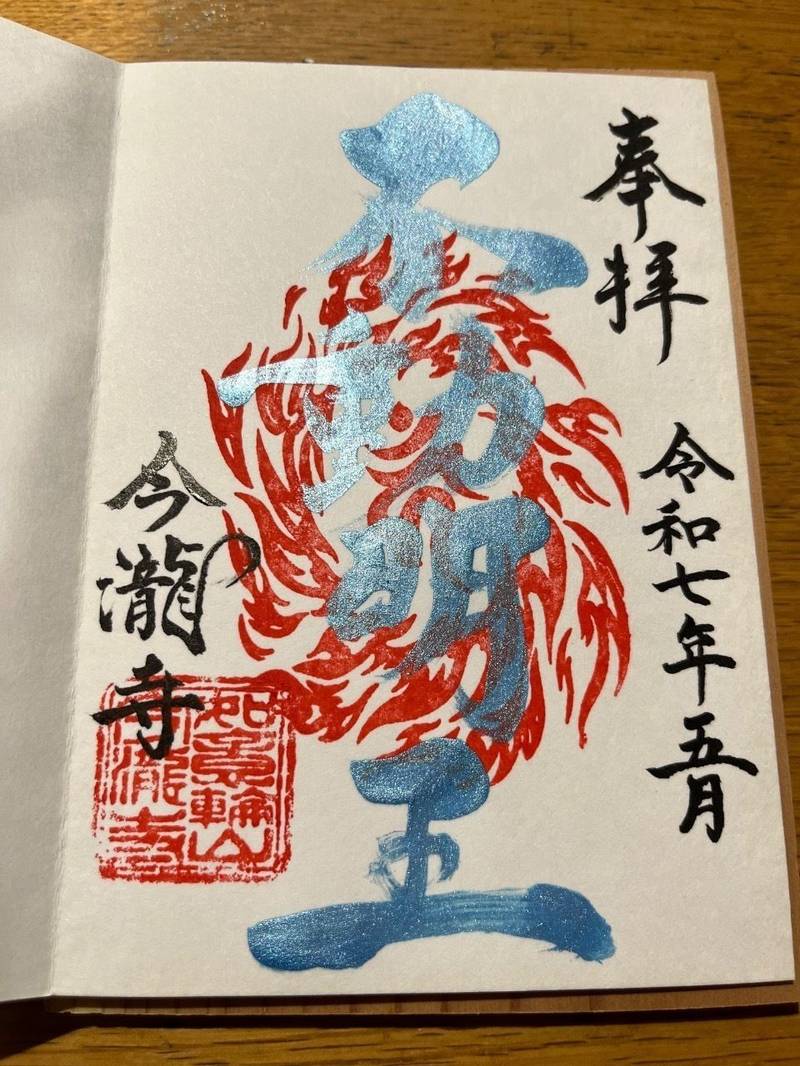 奉拝
令和七年五月
不動明王
今瀧寺
如意輪山
今瀧寺